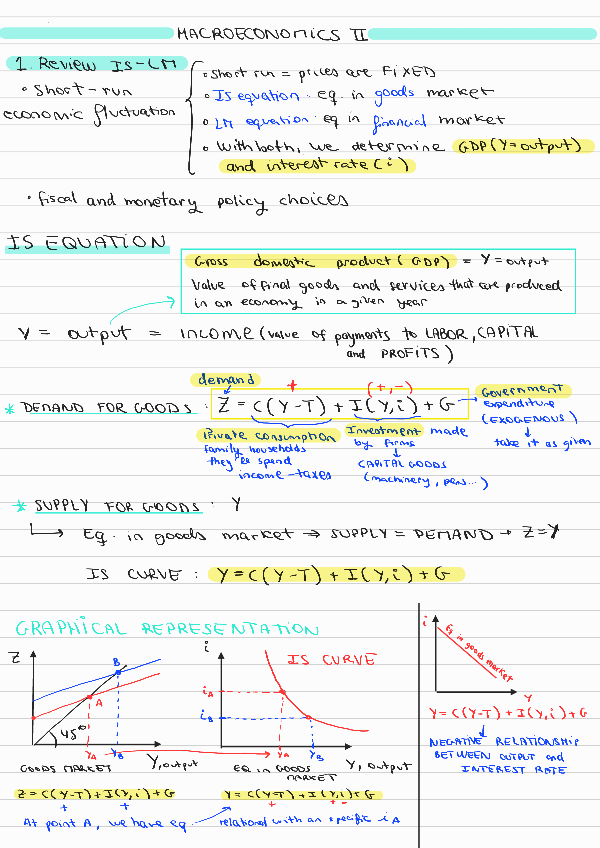 MACROECONOMICS II
1. Review IS-LM
• Short-run economic fluctuation
• Short run = prices are FIXED
• IS equation: eq. in goods market
• LM equation: eq in financial market
• With both, we determine GDP (Y=output)
and interest rate (i)
• fiscal and monetary policy choices
IS EQUATION
Gross domestic product (GDP) = Y = output
Value of final goods and services that are produced
in an economy in a given year
Y = output = INCOME (value of payments to LABOR, CAPITAL
and PROFITS)
demand
+ (+,-)
* DEMAND FOR GOODS: Z = C(Y-T) + I(Y,i) + G
Government
expenditure
(EXOGENOUS)
take it as given
Private consumption
family households
they'll spend
income - taxes
Investment made
by firms
CAPITAL GOODS
(machinery, pens...)
* SUPPLY FOR GOODS: Y
Eq. in goods market → SUPPLY = DEMAND → Z=Y
IS CURVE: Y = C(Y-T) + I(Y,i) + G
GRAPHICAL REPRESENTATION
Z
B
A
45°
YA YB
Y, output
GOODS MARKET
Z = C(Y-T) + I(Y,i) + G
+ +
At point A, we have eq.
i
IS CURVE
iA
iB
YA YB
Y, output
EQ IN GOODS
MARKET
Y = C(Y-T) + I(Y,i) + G
+ + -
related with an specific iA
i
Eq in goods market
Y
Y = C(Y-T) + I(Y,i) + G
NEGATIVE RELATIONSHIP
BETWEEN OUTPUT and
INTEREST RATE